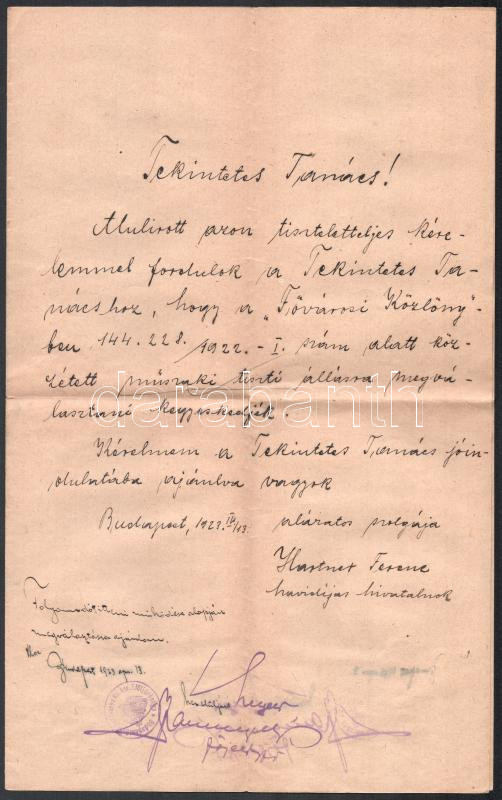 Tekintetes Tanács!
Alulirott azon tiszteletteljes kére-
lemmel fordulok a Tekintetes Ta-
nácshoz, hogy a „Fővárosi Közlöny"-
ben 144.228./1922. - I. szám alatt köz-
zétett műszaki tiszti állásra megvá-
lasztani kegyeskedjék.
Kérelmem a Tekintetes Tanács jóin-
dulatába ajánlva vagyok
Budapest, 1923. IV/13.
alázatos szolgája
Hartner Ferenc
havidíjas hivatalnok
működése alapján
megválasztásra ajánlom.
Budapest 1923 apr. 13.
darabanth